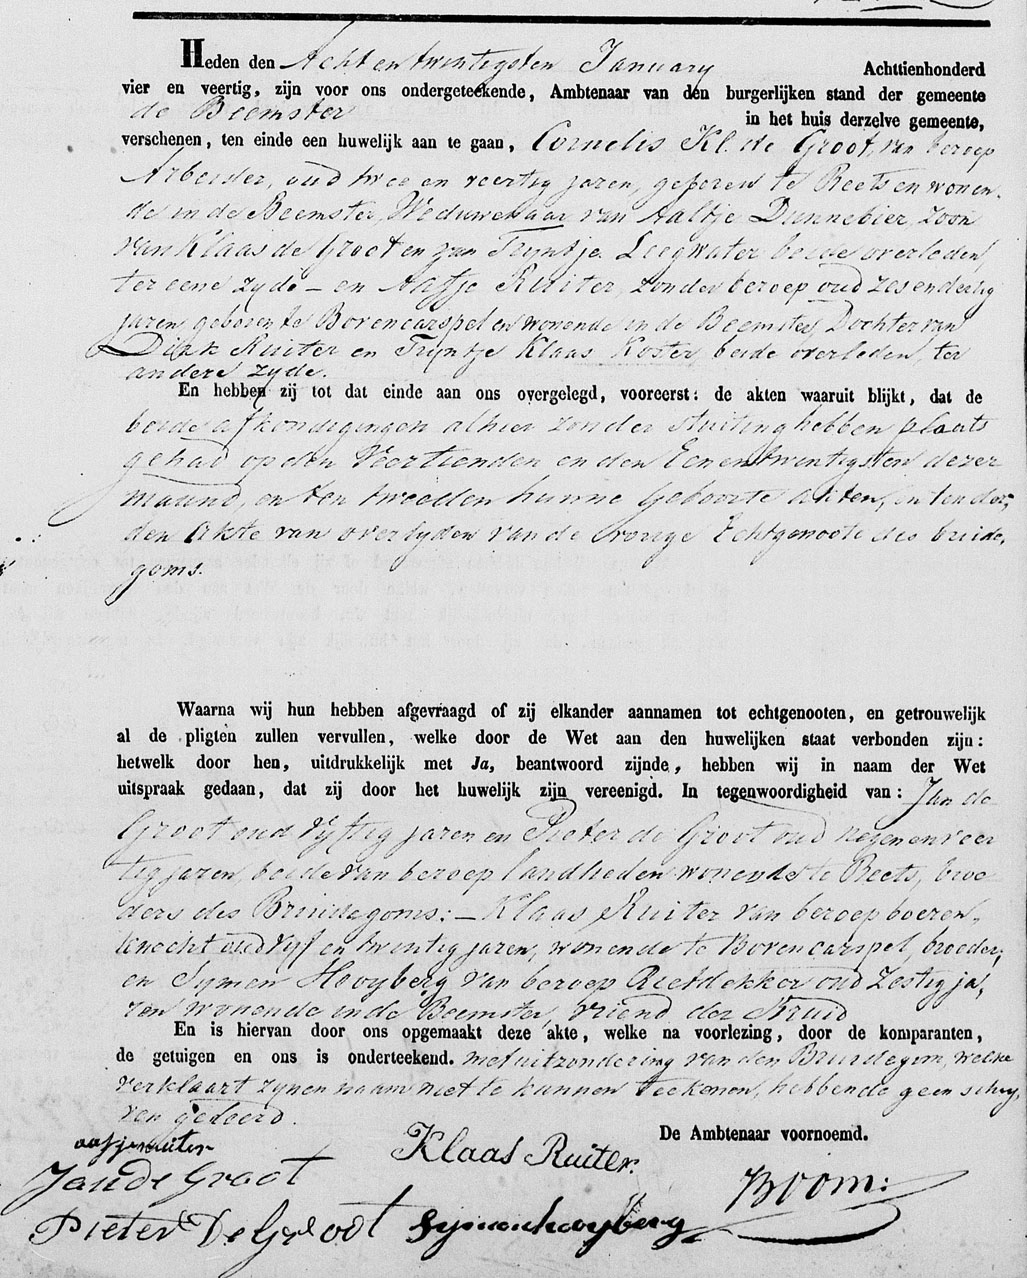 Heden den Acht en twintigsten January Achttienhonderd
vier en veertig, zijn voor ons ondergeteekende, Ambtenaar van den burgerlijken stand der gemeente
de Beemster in het huis derzelve gemeente,
verschenen, ten einde een huwelijk aan te gaan, Cornelis Kl. de Groot, van beroep
Arbeider, oud twee en veertig jaren, geboren te Beets en wonen„
de in de Beemster, Weduwenaar van Aaltje Dunnebier, zoon
van Klaas de Groot en van Trijntje Leegwater beide overleden
ter eene zyde – en Aafje Ruiter, zonder beroep oud zes en dertig
jaren geboren te Bovencarspel en wonende in de Beemster Dochter van
Dirk Ruiter en Trijntje Klaas Koster beide overleden, ter
andere zyde.
En hebben zij tot dat einde aan ons overgelegd, vooreerst: de akten waaruit blijkt, dat de
beide afkondigingen alhier zonder stuiting hebben plaats
gehad op den Veertienden en den Een en twintigsten dezer
maand, en ten tweeden hunne Geboorte akten, en ten der„
den Akte van overlyden van de vorige Echtgenoote des bruide„
goms.
Waarna wij hun hebben afgevraagd of zij elkander aannamen tot echtgenooten, en getrouwelijk
al de pligten zullen vervullen, welke door de Wet aan den huwelijken staat verbonden zijn:
hetwelk door hen, uitdrukkelijk met Ja, beantwoord zijnde, hebben wij in naam der Wet
uitspraak gedaan, dat zij door het huwelijk zijn vereenigd. In tegenwoordigheid van: Jan de
Groot oud Vyftig jaren en Pieter de Groot oud negen en veer
tig jaren, beide van beroep landlieden wonende te Beets, broe„
ders des Bruidegoms; – Klaas Ruiter van beroep boeren„
knecht oud vyf en twintig jaren, wonende te Bovencarspel, broeder,
en Symen Hooyberg van beroep Rietdekker oud Zestig ja„
ren wonende in de Beemster, vriend der Bruid
En is hiervan door ons opgemaakt deze akte, welke na voorlezing, door de komparanten,
de getuigen en ons is onderteekend. met uitzondering van den Bruidegom, welke
verklaart zynen naam niet te kunnen teekenen, hebbende geen schry„
ven geleerd.
De Ambtenaar voornoemd.
aafje ruiter
Klaas Ruiter.
Jan de Groot
Boom:
Pieter De Groot
Symon hooyberg